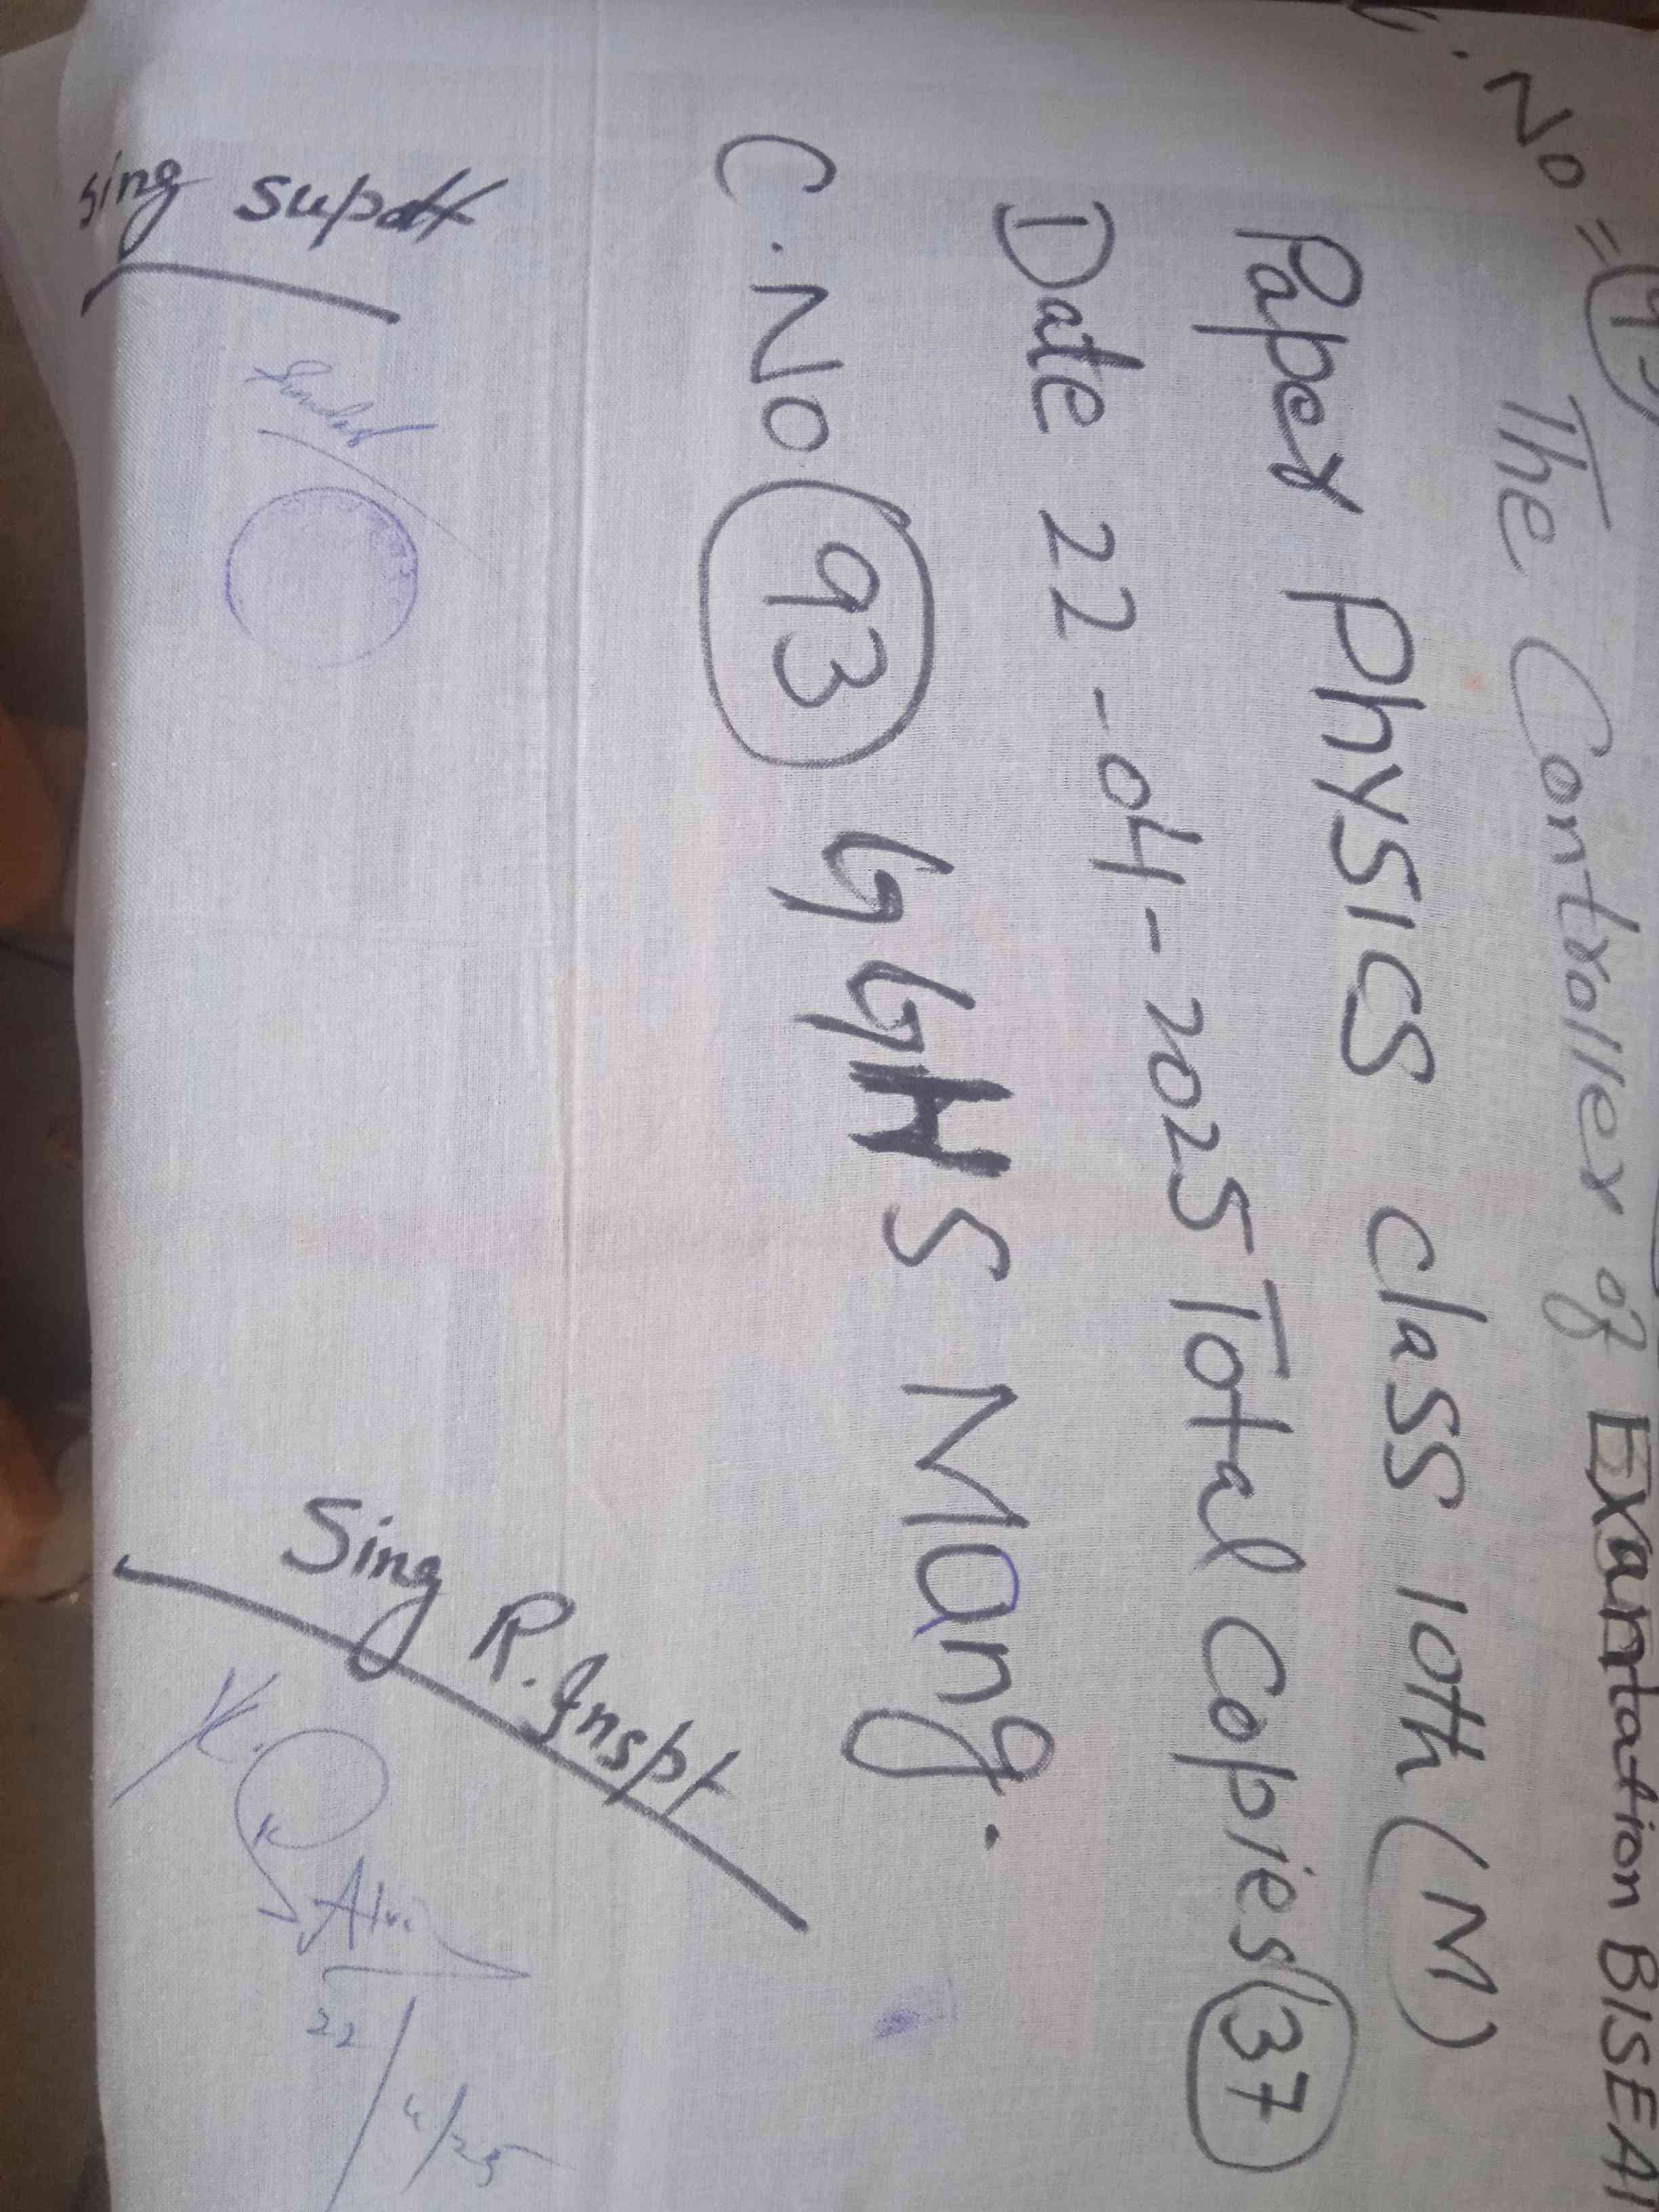 C. No = (93)
The Contraller of Examntation BISEAT
Paper Physics class 10th (M)
Date 22-04-2025 Total Copies 37
C. No 93 GGHS Mang.
Sing supdt
Sing R. Inspt
22/4/25